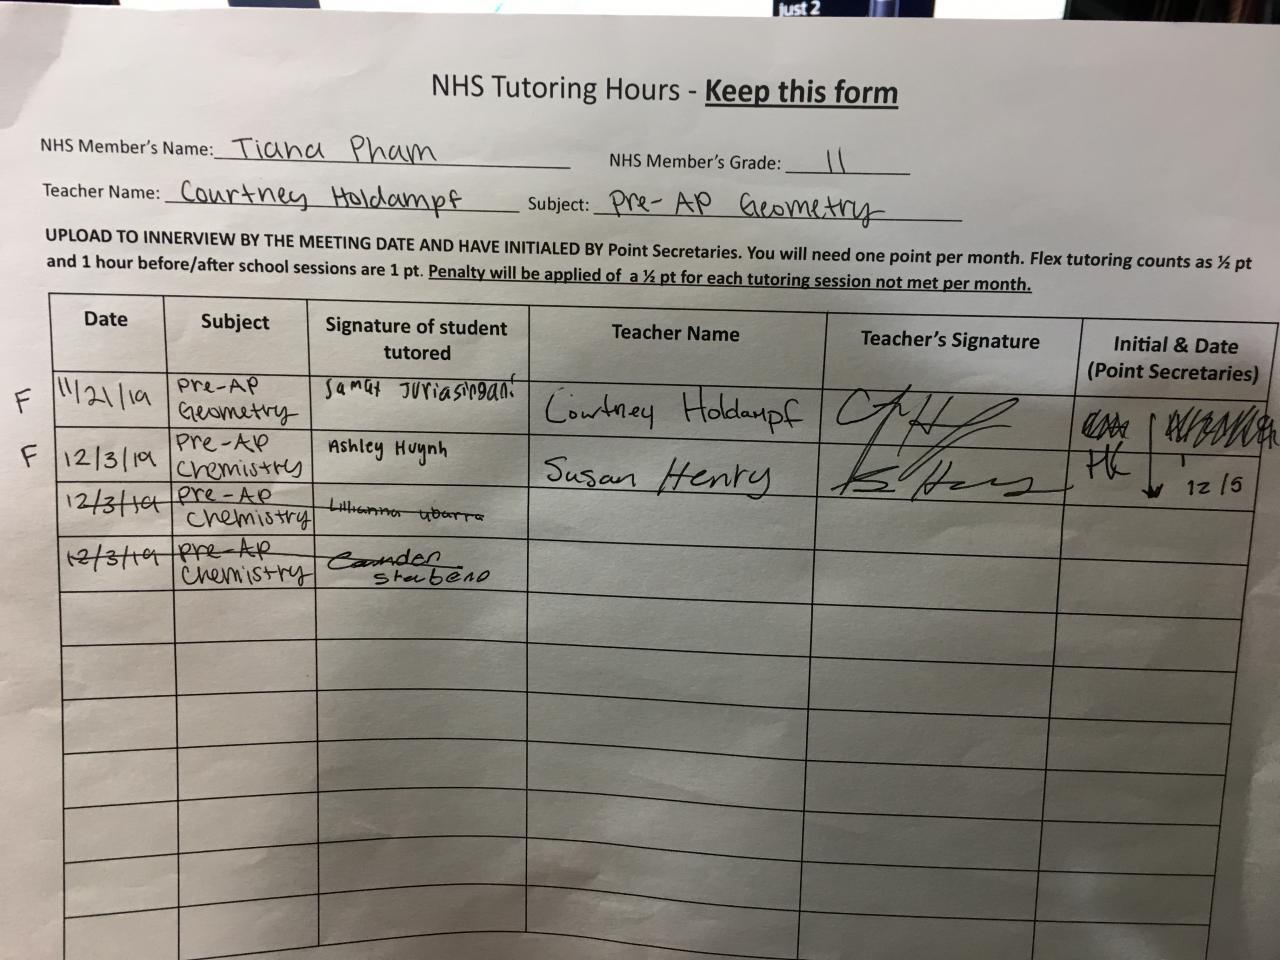 just 2
NHS Tutoring Hours - Keep this form
NHS Member's Name: Tiana Pham NHS Member's Grade: 11
Teacher Name: Courtney Holdampf Subject: Pre-AP Geometry
UPLOAD TO INNERVIEW BY THE MEETING DATE AND HAVE INITIALED BY Point Secretaries. You will need one point per month. Flex tutoring counts as ½ pt
and 1 hour before/after school sessions are 1 pt. Penalty will be applied of a ½ pt for each tutoring session not met per month.
Date Subject Signature of student tutored Teacher Name Teacher's Signature Initial & Date (Point Secretaries)
F 11/21/19 Pre-AP Geometry Courtney Holdampf
F 12/3/19 Pre-AP Chemistry Ashley Huynh Susan Henry HK 12/5
12/3/19 Pre-AP Chemistry Lillianna Ybarra
12/3/19 Pre-AP Chemistry Camden Stabeno